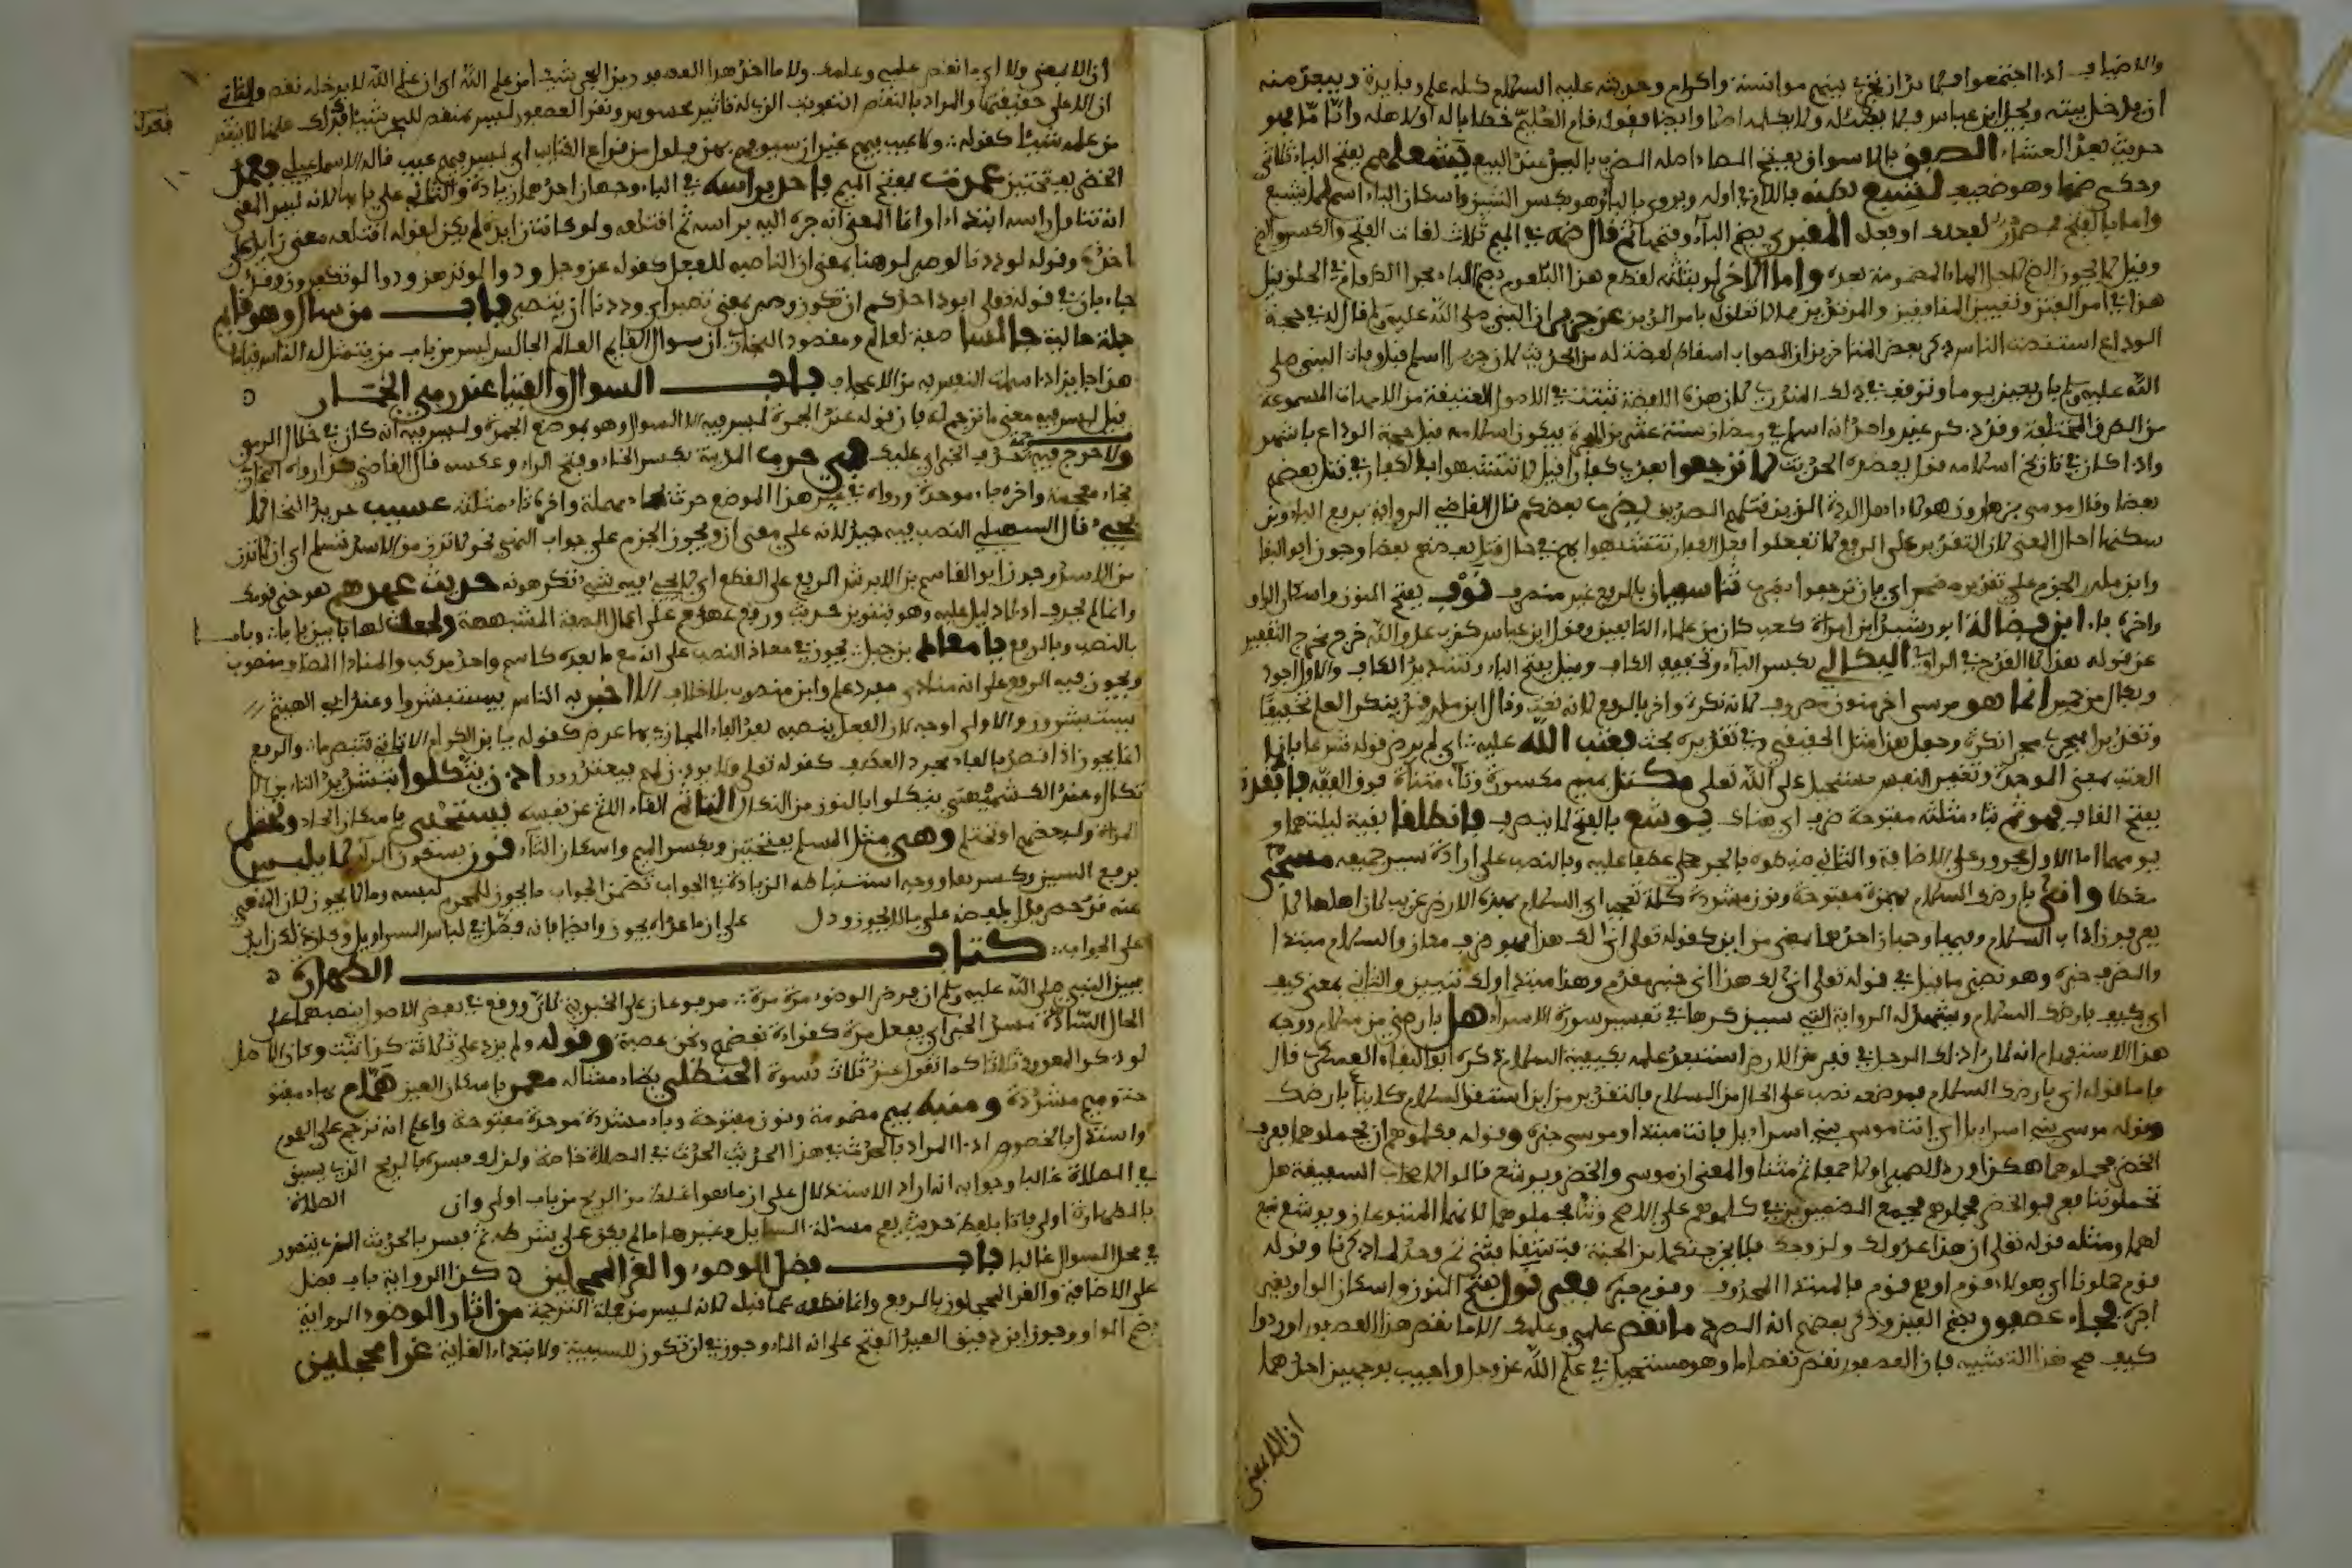 والاضياف اذا اجتمعوا فلا بد ان يجري بينهم موانسة واكرام وحديثه عليه السلام كله علم وفايدة ويبعد منه
ان يدخل بيته ويجد ابن عباس فيه ولا يحدثه ولا يكلمه اصلا وايضا فقوله نام الغليم خطابا له او لاهله وايا ما فهو
حديث بعد العشاء الصفق بالاسواق بفتح الصاد اصله الضرب باليد عند البيع يشغلهم بفتح الياء ثلاثي
وحكي ضمها وهو ضعيف لشبع بطنه باللام في اوله ويروى بالباء وهو بكسر الشين واسكان الباء اسم لما يشبع
واما بالفتح فمصدر المقبري بضم الباء وفتحها ثم قال ضمه في الميم ثلاث لغات الفتح والكسر والضم
وقيل لا يجوز الا الضم لاجل الهاء المضمومة بعده واما الاخر لو بثثته لقطع هذا البلعوم بضم الباء مجرى الطعام في الحلق قيل
هذا في امر الفتن وتعيين المنافقين والمرتدين مما لا تعلق له بامر الدين عن جرير ان النبي صلى الله عليه وسلم قال له في حجة
الوداع استنصت الناس ذكر بعض المتاخرين ان الصواب اسقاط لفظة له من الحديث لان جريرا اسلم قبل وفاة النبي صلى
الله عليه وسلم باربعين يوما وتوقف في ذلك المنذري لان هذه اللفظة ثبتت في الاصول العتيقة من الامهات المسموعة
من الطرق المختلفة وقد ذكر غير واحد انه اسلم في رمضان سنة عشر من الهجرة فيكون اسلامه قبل حجة الوداع باشهر
واذا كان في تاريخ اسلامه قول يعضده الحديث لا ترجعوا بعدي كفارا قيل لا تتشبهوا بالكفار في قتل بعضهم
بعضا وقال موسى بن هارون هؤلاء اهل الردة الذين قتلهم الصديق يضرب بعضكم قال القاضي الرواية برفع الباء ومن
سكنها احال المعنى لان التقدير على الرفع لا تفعلوا فعل الكفار تتشبهوا بهم في حال قتل بعضهم بعضا وجوز ابو البقا
وابن مالك الجزم على تقدير مضمر اي فان ترجعوا يضرب نوف بفتح النون واسكان الواو
واخره فاء ابن فضالة ابو رشيد ابن امراة كعب كان من علماء التابعين وقول ابن عباس كذب عدو الله خرج مخرج التنفير
عن قوله لا القدح في الراوي البكالي بكسر الباء وتخفيف الكاف ومنهم بفتح الباء وتشديد الكاف والاول اجود
انما هو موسى اخر منون مصروف لانه نكرة واخر بالرفع لانه نعت وقال ابن مالك قد ينكر العلم تحقيقا
وتقديرا فيجري مجرى نكرة وجعل هذا مثل الحقيقي وفي تقديره بحث فعتب الله عليه اي لم يرض قوله شرعا فان
العتب بمعنى الموجدة وتغير النفس مستحيل على الله تعالى مكتل بميم مكسورة وتاء مثناة فوق القفة فاذا فقدته
بفتح القاف فهو ثم بثاء مثلثة مفتوحة ظرف اي هناك يوشع بالفتح لا ينصرف فانطلقا بقية ليلتهما و
يومهما اما الاول مجرور على الاضافة والثاني ضبطوه بالجر عطفا عليه وبالنصب على ارادة سير جميعه مسجى
مغطا وانى بارضك السلام بهمزة مفتوحة ونون مشددة كلمة تعجب اي السلام بهذه الارض غريب لان اهلها لا
يعرفون اداب السلام وفيها وجهان احدهما بمعنى من اين كقوله تعالى انى لك هذا فهو ظرف مكان والسلام مبتدا
والظرف خبره وهو نظير ما قيل في قوله تعالى انى لك هذا انى خبر مقدم وهذا مبتدا ولك تبيين والثاني بمعنى كيف
اي كيف بارضك السلام ويشهد له الرواية التي سيذكرها في تفسير سورة الاسراء هل بارضي من سلام ووجه
هذا الاستفهام انه لما راى ذلك الرجل في قفر من الارض استبعد علمه بكيفية السلام ذكره ابو البقاء العكبري قال
فاما قوله انى بارضك السلام فموضعه نصب على الحال من السلام فالتقدير من اين استقر السلام كائنا بارضك
وقوله موسى بني اسراءيل اي انت موسى بني اسراءيل فانت مبتدا وموسى خبره وقوله فكلموهم ان يحملوهما فعرف
الخضر فحملوهما هكذا ورد الضمير اولا جمعا ثم مثنى والمعنى ان موسى والخضر ويوشع قالوا لاصحاب السفينة هل
تحملوننا فعرفوا الخضر فحملوهم فجمع الضمير في كلموهم على الاصل وثنى يحملوهما لانهما المتبوعان ويوشع تبع
لهما ومثله قوله تعالى ان هذا عدو لك ولزوجك فلا يخرجنكما من الجنة فتشقى فثنى ثم وحد لما ذكرنا وقوله
قوم حملونا اي هؤلاء قوم او هم قوم فالمبتدا المحذوف وقوم خبره بغير نول بفتح النون واسكان الواو يعني
اجرة فجاء عصفور بضم العين وذكر بعضهم انه الصرد ما نقص علمي وعلمك الا ما نقص هذا العصفور اوردوا
كيف صح هذا التشبيه فان العصفور نقص نقصا ما وهو مستحيل في علم الله عز وجل واجيب بوجهين احدهما
ان الا بمعنى
ان الا بمعنى ولا اي ما نقص علمي وعلمك ولا ما اخذ هذا العصفور من البحر شيئا من علم الله اي ان علم الله لا يدخله نقص والثاني
ان الا على حقيقتها والمراد بالنقص التفويت الذي له تاثير محسوس ونقر العصفور ليس بمنقص للبحر شيئا فكذلك علمنا لا ينقص
من علمه شيئا كقوله ولا عيب فيهم غير ان سيوفهم بهن فلول من قراع الكتايب اي ليس فيهم عيب قاله الاسماعيلي فعمد
الخضر بفتحتين عمدت بفتح الميم فاخذ براسه في الباء وجهان احدهما زيادة والثاني على بابها لانه ليس المعنى
انه تناول راسه ابتداء وانما المعنى انه جره اليه براسه ثم اقتلعه ولو كانت زايدة لم يكن لقوله اقتلعه معنى زايد على
اخذه وقوله لوددنا لو صبر لو هنا بمعنى ان الناصبة للفعل كقوله عز وجل ودوا لو تدهن ودوا لو تكفرون وقد
جاء بان في قوله تعالى ايود احدكم ان تكون وصبر بمعنى تصبر اي وددنا ان يصبر باب من سال وهو قايم
جملة حالية جالسا صفة لعالم ومقصود البخاري ان سوال القايم العالم الجالس ليس من باب من يتمثل له الناس قياما
هذا جايز اذا سلمت النفس فيه من الاعجاب باب السؤال والفتيا عند رمي الجمار
قيل ليس فيه معنى ما ترجم له فان قوله عند الجمرة ليس فيه الا السؤال وهو بموضع الجمرة وليس فيه انه كان في خلال الرمي
ولا حرج فيه حذف الخبر اي عليك في خرب المدينة بكسر الخاء وفتح الراء وعكسه قال القاضي كذا رواه البخاري
بخاء معجمة واخره باء موحدة ورواه في غير هذا الموضع حرث بحاء مهملة واخره ثاء مثلثة عسيب جريد النخل لا
يجيء قال السهيلي النصب فيه جيد لانه على معنى ان ويجوز الجزم على جواب النهي نحو لا تدن من الاسد تسلم اي ان لا تدن
من الاسد وجوز ابو القاسم بن الابرش الرفع على القطع اي لا يجيء فيه شيء تكرهونه حديث عهدهم هو حتى قومك
وانما لم يحرف اذ لا دليل عليه وهو بتنوين حديث ورفع عهدهم على اعمال الصفة المشبهة ولجعلت لها بابين باب وباب
بالنصب وبالرفع يا معاذ بن جبل يجوز في معاذ النصب على انه مع ما بعده كاسم واحد مركب والمنادى المضاف منصوب
ويجوز فيه الرفع على انه منادى مفرد علم وابن منصوب بلا خلاف الا اخبر به الناس فيستبشروا وعند ابي الهيثم
يستبشرون والاولى اوجه لان الفعل ينصب بعد الفاء المجاب بها عرض كقوله يا بن الكرام الا تاتي فتبصر ما والرفع
انما يجوز اذا قصد بالفاء مجرد العطف كقوله تعالى ولا يوذن لهم فيعتذرون اذن يتكلوا بتشديد التاء من الا
تكال وعند الكشميهني ينكلوا بالنون من النكال تاثما القاء الاثم عن نفسه يستحيي باسكان الحاء وتحتلم
المراة ولبعضهم اوتحتلم وهي مثل المسلم بفتحتين وبكسر الميم واسكان الثاء قرن بسكون الراء لا يلبس
برفع السين وكسرها ووجه استنباطه الزيادة في الجواب تضمن الجواب ما يجوز للمحرم لبسه وما لا يجوز لان النهي
على ان ما عداه يجوز وايضا فانه فصل في لباس السراويل
على الجواب كتاب الطهارة
فبين النبي صلى الله عليه وسلم ان فرض الوضوء مرة مرة مرفوعان على الخبرية لان ووقع في بعض الاصول نصبهما على
الحال السادة مسد الخبر اي يفعل مرة كقراءة بعضهم ونحن عصبة وقوله ولم يزد على ثلاثة كذا ثبت وكان الاصل
ثلاثا كما تقول عندي ثلاث نسوة الحنظلي بظاء مشالة معمر باسكان العين همام بهاء مفتو
حة وميم مشددة ومنبه بميم مضمومة ونون مفتوحة وباء مشددة موحدة مفتوحة واعلم انه ترجم على العموم
واستدل بالخصوص اذ المراد بالحدث في هذا الحديث الحدث في الصلاة خاصة ولذلك فسره بالريح الذي يسبق
في الصلاة غالبا وجوابه انه اراد الاستدلال على ان ما هو اغلظ من الريح من باب اولى وان الصلاة
بالطهارة اولى
في محل السؤال غالبا باب فضل الوضوء والغر المحجلين كذا الرواية باب فضل
على الاضافة والغر المحجلون بالرفع وانما قطعه عما قبله لانه ليس من جملة الترجمة من اثار الوضوء الرواية
بضم الواو وجوز ابن دقيق العيد الفتح على انه الماء وجوز في من ان تكون للسببية ولابتداء الغاية غرا محجلين